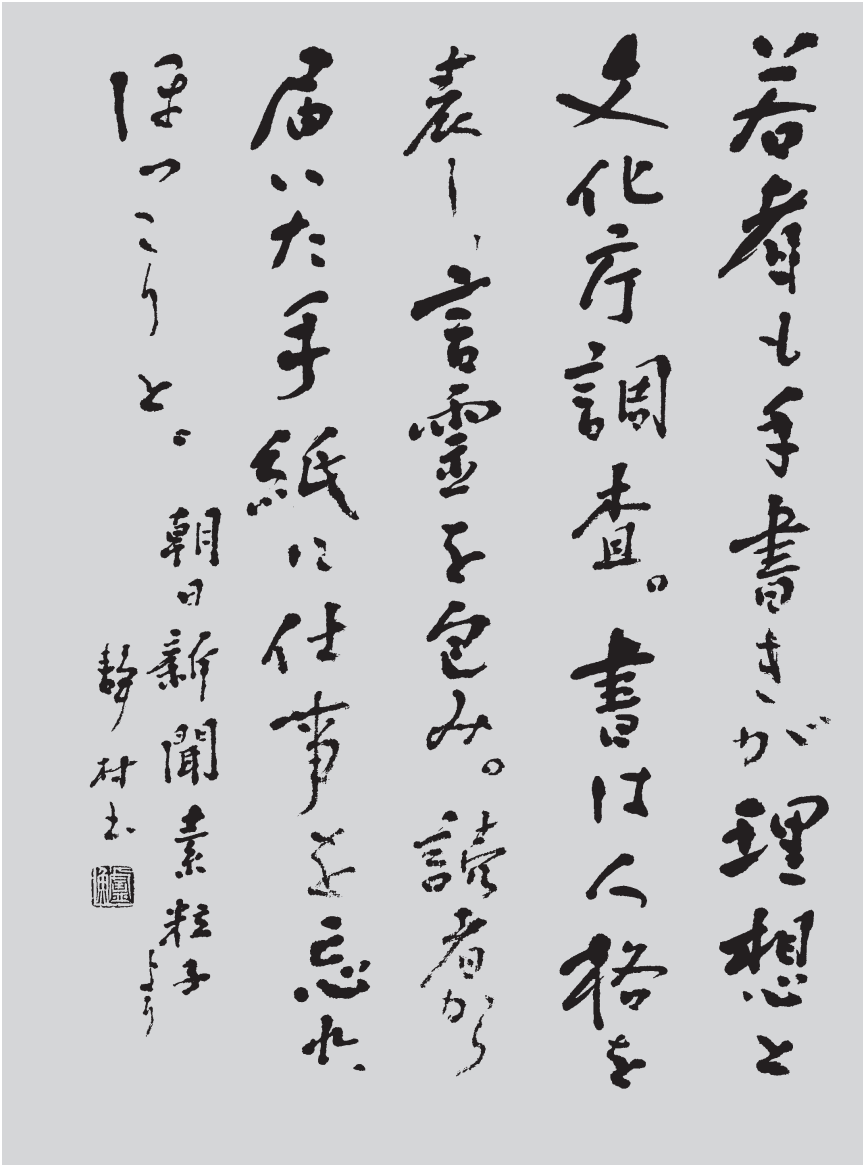 若者も手書きが理想と
文化庁調査。書は人格を
表し、言霊を包み。読者から
届いた手紙に仕事を忘れ、
ほっこりと。
朝日新聞素粒子より
静村書